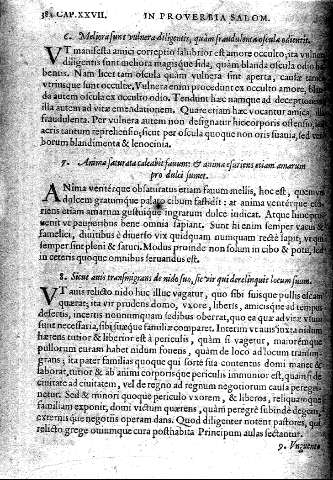 382 CAP. XXVII. IN PROVERBIA SALOM.
6. Meliora sunt vulnera diligentis, quàm fraudulenta oscula odientis.
VT manifesta amici correptio salubrior est amore occulto; ita vulnera
diligentis sunt meliora magisque fida, quàm blanda oscula odio ha-
bentis. Nam licet tam oscula quàm vulnera sint aperta, causæ tamen
vtriusque sunt occultæ, Vulnera enim procedunt ex occulto amore,
da autem oscula ex occulto odio. Tendunt hæc namque ad deceptionem
illa autem ad vitæ emendationem. Quare etiam hæc vocantur amica,
fraudulenta. Per vulnera autem non designatur hîc corporis offensio,
acris tantum reprehensio, sicut per oscula quoque non oris suauia, sed ver-
borum blandimenta & lenocinia.
7. Anima saturata calcabit fauum: & anima esuriens etiam amarum
pro dulci sumet.
ANima venterque obsaturatus etiam fauum mellis, hoc est, quemuis
dulcem gratumque palato cibum fastidit: at anima venterque esu-
riens etiam amarum gustuique ingratum dulce iudicat. Atque hinc pro-
uenit vt pauperibus bene omnia sapiant. Sunt hi enim semper vacui &
famelici, diuitibus è diuerso vix quidquam nunquam rectè sapit, vt qui
semper sint pleni & saturi. Modus proinde non solum in cibo & potu, sed
in ceteris quoque omnibus seruandus est.
8. Sicut auis transmigrans de nido suo, sic vir qui derelinquit locum suum.
VT auis relicto nido huc illuc vagatur, quo sibi suisque pullis escam
quærat; ita vir prudens domo, vxore, liberis, amicisque ad tempus
desertis, incertus nonnunquam sedibus oberrat, quo ea quæ ad vitæ vsum
sunt necessaria, sibi suæque familiæ comparet. Interim vt auis iuxta nidum
hærens tutior & liberior est à periculis, quàm si vagetur, maioremque
pullorum curam habet nidum fouens, quàm de loco ad locum transmi-
grans; ita pater familias quoque qui sorte sua contentus domi manet &
laborat, tutior & ab animi corporisque periculis immunior est, quàm si de
ciuitate ad ciuitatem, vel de regno ad regnum negotiorum causa peregri-
netur. Sed & minori quoque periculo vxorem, & liberos, reliquamque
familiam exponit, domi victum quærens, quàm peregrè subinde degens,
externisque negotiis operam dans. Quod diligenter notent pastores, qui
relicto grege ouiumque cura posthabita Principum aulas sectantur.
9. Vnguento